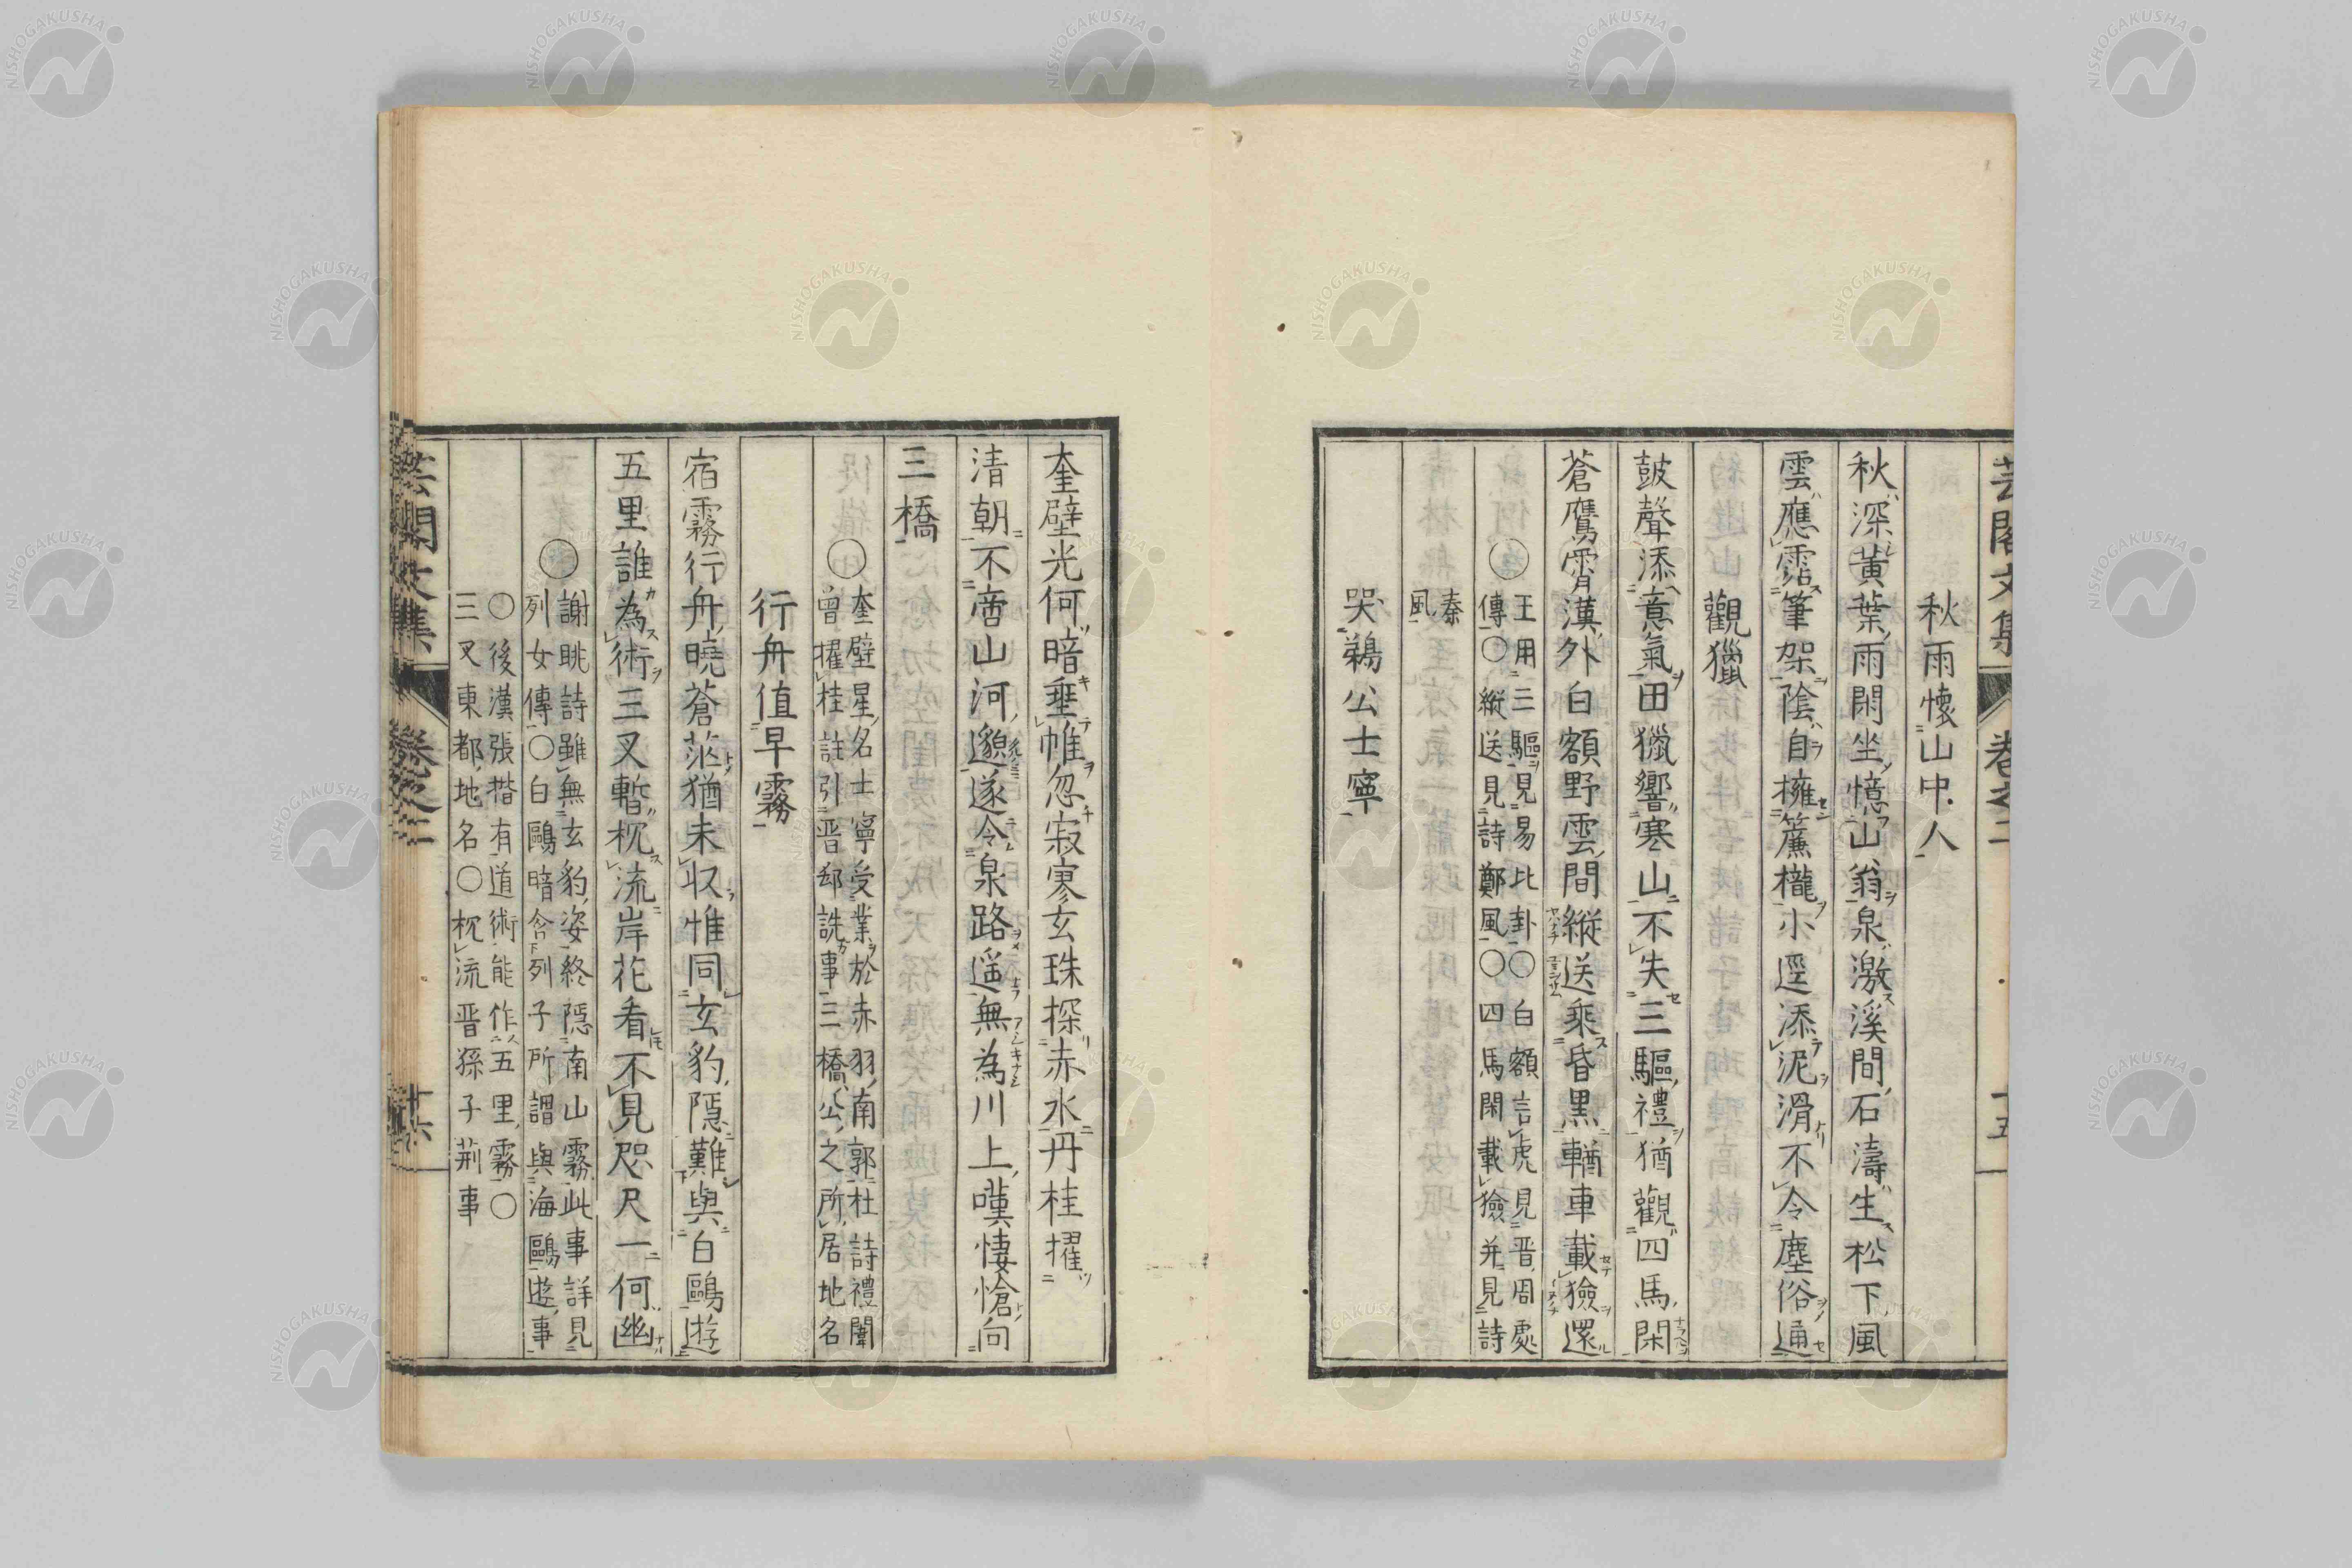 芸閣文集 卷之二 十五
秋雨懷山中人
秋深黃葉雨閒坐憶山翁泉激溪間石濤生松下風
雲應霑筆架陰自擁簾櫳小逕添泥滑不令塵俗通
觀獵
鼓聲添意氣田獵響寒山不失三驅禮猶觀四馬閑
蒼鷹霄漢外白額野雲間縱送乘昏黑輶車載獫還
〇王用三驅見易比卦〇白額言虎見晋周處
傳〇縱送見詩鄭風〇四馬閑載獫并見詩
秦
風
哭鵜公士寧
奎壁光何暗垂帷忽寂寥玄珠探赤水丹桂擢
清朝不啻山河邈遂令泉路遥無為川上嘆悽愴向
三橋
〇奎壁星名士寧受業於赤羽南郭杜詩禮闈
曾擢桂註引晋郄詵事三橋公之所居地名
行舟值早霧
宿霧行舟曉蒼茫猶未収惟同玄豹隱難與白鷗遊
五里誰為術三叉暫枕流岸花看不見咫尺一何幽
〇謝眺詩雖無玄豹姿終隱南山霧此事詳見
列女傳〇白鷗暗含列子所謂與海鷗遊事
〇後漢張楷有道術能作五里霧〇
三叉東都地名〇枕流晋孫子荊事
芸閣文集 卷之二 十六
NISHOGAKUSHA